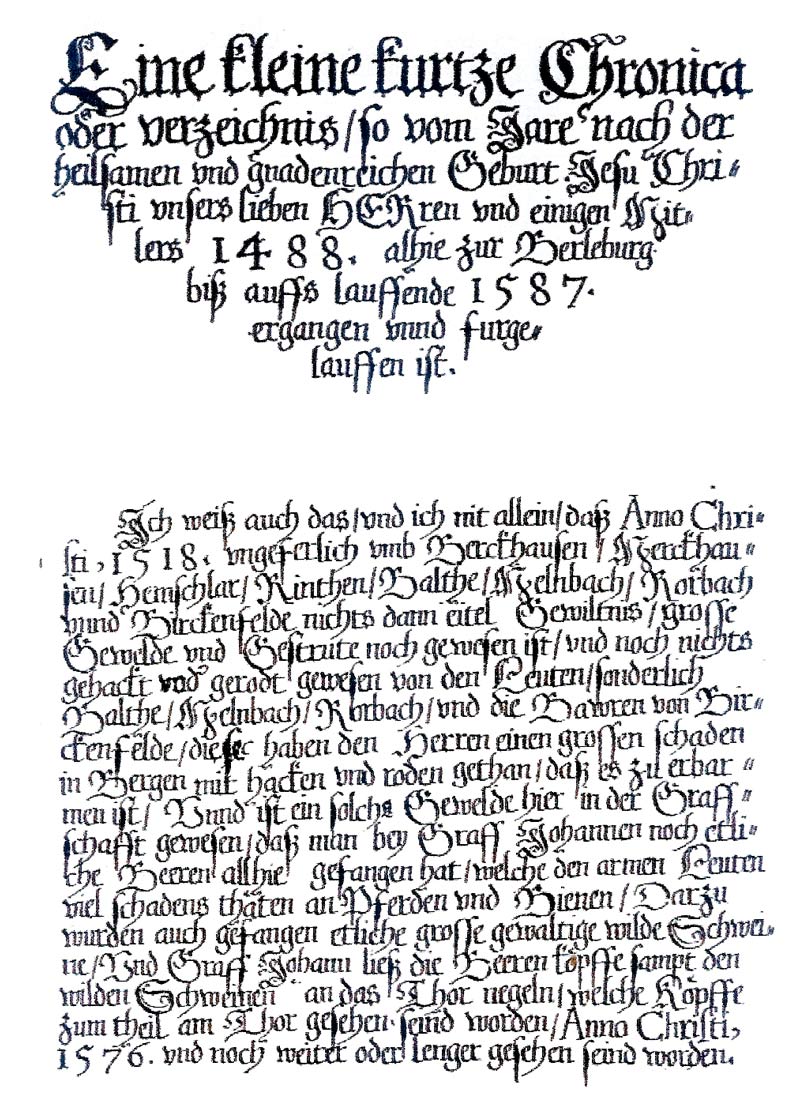 Eine kleine kurtze Chronica
oder verzeichnis/so vom Jare nach der
heilsamen vnd gnadenreichen Geburt Jesu Chri⸗
sti vnsers lieben HERren vnd einigen Mit⸗
lers 1488. alhie zur Berleburg
biß auffs lauffende 1587.
ergangen vnnd furge⸗
lauffen ist.
Ich weiß auch das/vnd ich nit allein/daß Anno Chri⸗
sti, 1518. vngeferlich vmb Berckhausen/Merckhau⸗
sen/Hemschlar/Rinthen/Balthe/Melnbach/Rorbach
vnnd Birckenfelde nichts dann eitel Gewiltnis/grosse
Gewelde vnd Gestrüte noch gewesen ist/vnd noch nichts
gehackt vnd gerodt gewesen von den Leuten/sonderlich
Balthe/Melnbach/Rorbach/vnd die Bawren von Bir⸗
ckenfelde/diese haben den Herren einen grossen schaden
in Bergen mit hacken vnd roden gethan/daß es zu erbar⸗
men ist/ Vnnd ist ein solchs Gewelde hier in der Graff⸗
schafft gewesen/daß man bey Graff Johannen noch etli⸗
che Beeren allhie gefangen hat/welche den armen Leuten
viel schadens thäten an Pferden vnd Bienen/Darzu
wurden auch gefangen etliche grosse gewaltige wilde Schwei⸗
ne/Vnd Graff Johann ließ die Beeren köpffe sampt den
wilden Schweinen an das Thor negeln/welche Köpffe
zum theil am Thor gesehen seind worden/Anno Christi,
1576. vnd noch weiter oder lenger gesehen seind worden.